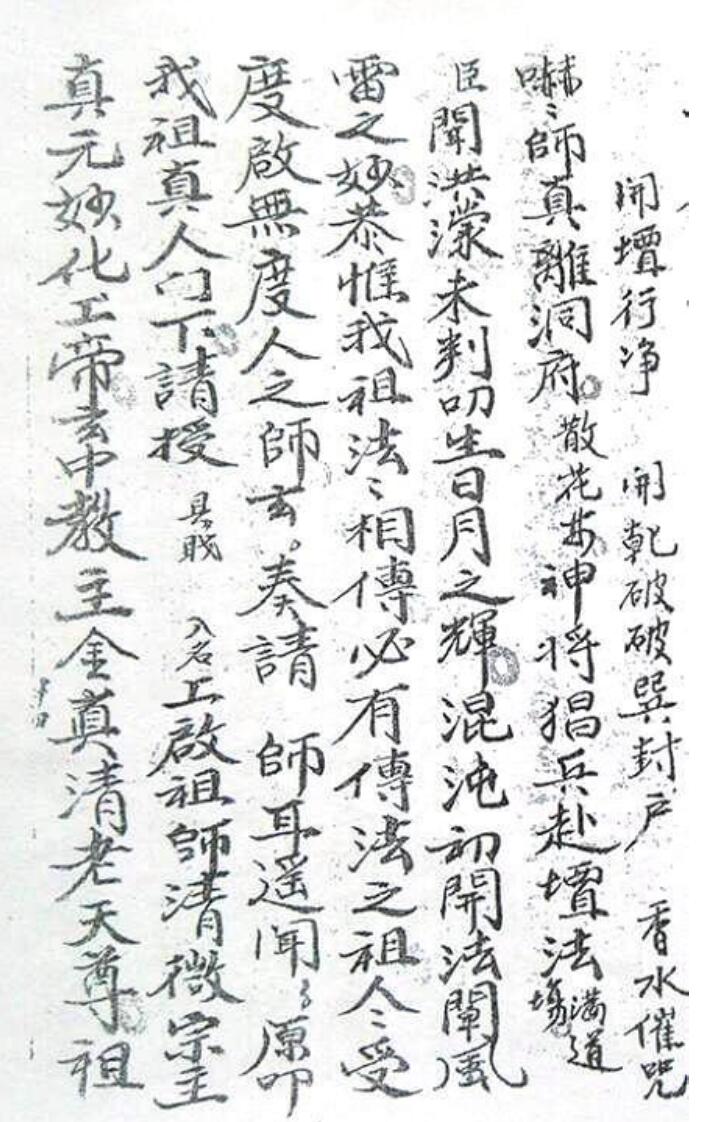 開壇行净 開乾破破巽封户 香水催咒
嚇〻師真離洞府散花女神将猖兵赴壇法滿道場
臣聞洪濛未判叨生日月之輝混沌初開法闡風
雷之妙恭惟我祖法〻相傳必有傳法之祖人〻受
度啟無度人之師玄奏請 師耳遥聞〻原叩
我祖真人門下請授 具職 入名 上啟祖師清微宗主
真元妙化上帝玄中教主金真清老天尊祖